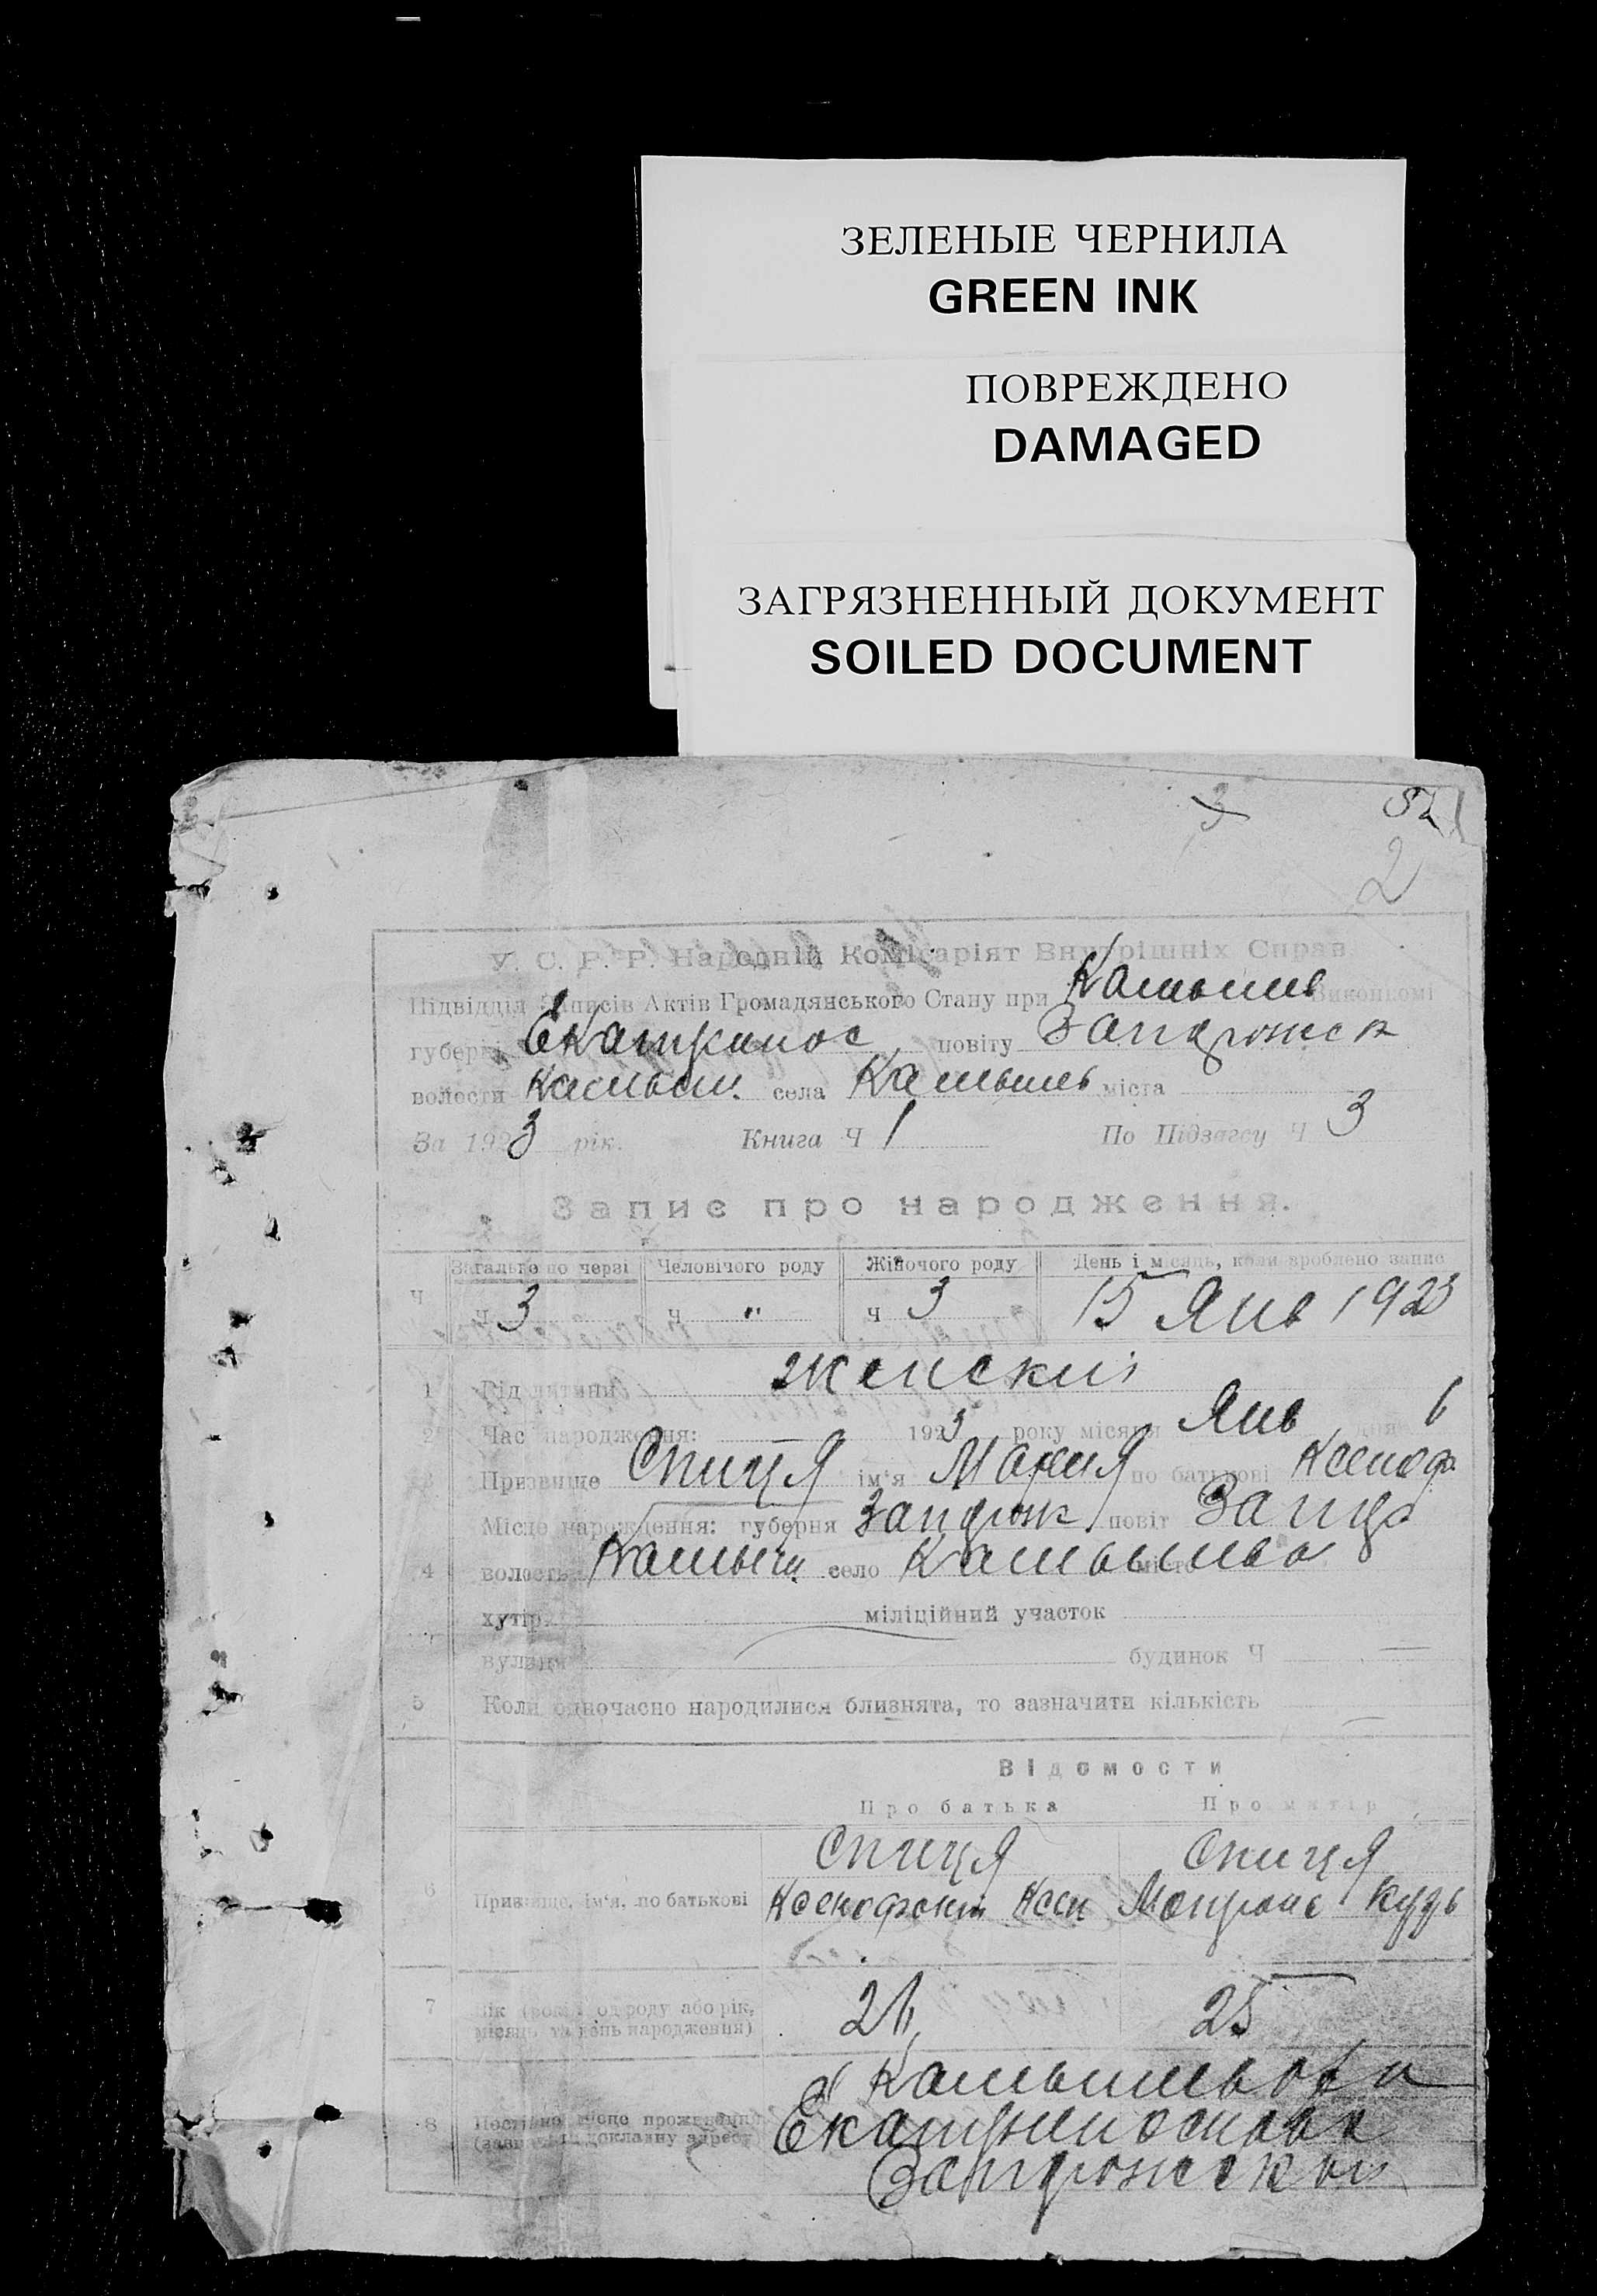 ЗЕЛЕНЫЕ ЧЕРНИЛА
GREEN INK
ПОВРЕЖДЕНО
DAMAGED
ЗАГРЯЗНЕННЫЙ ДОКУМЕНТ
SOILED DOCUMENT
3
2
У. С. Р. Р. Народній Комісаріят Внутрішніх Справ
Підвідділ Записів Актів Громадянського Стану при Камышев Виконкомі
губерні Екатринос повіту Запорожск
волости Камыш. села Камышев міста
За 1923 рік. Книга Ч 1 По Підзагсу Ч 3
Запис про народження.
Загальне по черзі Человічого роду Жіночого роду День і місяць, коли зроблено запис
Ч ч 3 ч " ч 3 15 Янв 1923
1 Рід дитини женский
2 Час народження: 1923 року місяця Янв дня 6
3 Призвище Спиця ім'я Мария по батькові Ксеноф
Місце народження: губерня Запорож повіт Запор
4 волость Камыш село Камышева місто
хутір міліційний участок
вулиця будинок Ч
5 Коли одночасно народилися близнята, то зазначити кількість
Відомости
Про батька Про матір
Спиця Спиця
6 Призвище, ім'я, по батькові Ксенофонт Ксен Матрона Кузь
7 Вік (років од роду або рік, місяць та день народження) 26 25
Камышевока
8 Постійне місце проживання Екатриносла
(зазначити докладну адресу) Запорожский